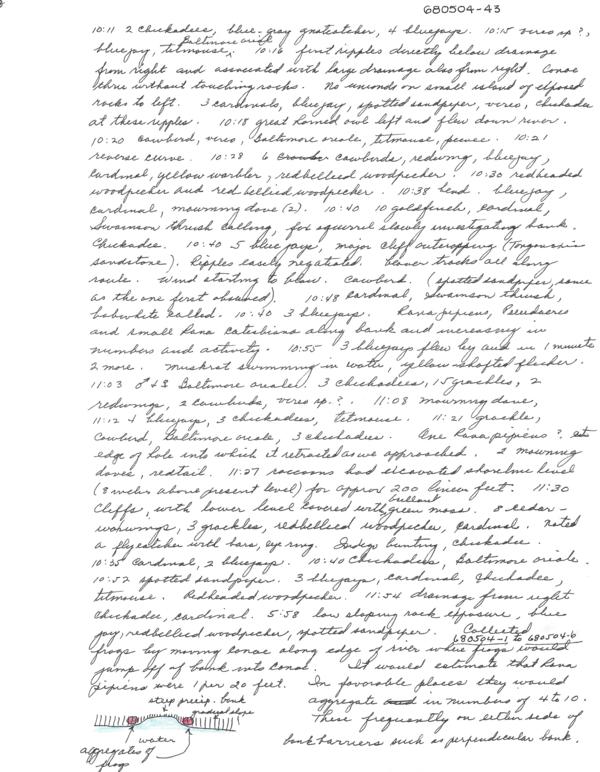 680504-43
10:11 2 chickadees, blue-gray gnatcatcher, 4 bluejays. 10:15 vireo sp?,
bluejay, titmouse, Baltimore oriole 10:16 first ripples directly below drainage
from right and associated with large drainage also from right. Canoe
thru without touching rocks. No unionids on small island of exposed
rocks to left. 3 cardinals, bluejay, spotted sandpiper, vireo, chickadee
at these ripples. 10:18 great horned owl left and flew down river.
10:20 cowbird, vireo, Baltimore oriole, titmouse, pewee. 10:21
reverse curve. 10:28 6 cowbirds, redwing, bluejay,
cardinal, yellow warbler, redbellied woodpecker. 10:30 redheaded
woodpecker and red bellied woodpecker. 10:38 bend. bluejay,
cardinal, mourning dove (2). 10:40 10 goldfinch, cardinal,
Swainson thrush calling, fox squirrel slowly investigating bank.
Chickadee. 10:40 5 bluejays, major cliff outcropping (Tonganoxie
sandstone). Ripples easily negotiated. Beaver tracks all along
route. Wind starting to blow. Cowbird. (spotted sandpiper, same
as the one first observed). 10:48 cardinal, Swainson thrush,
bobwhite called. 10:40 3 bluejays. Rana pipiens, Pseudacris
and small Rana catesbiana along bank and increasing in
numbers and activity. 10:55 3 bluejays flew by and in 1 minute
2 more. Muskrat swimming in water, yellow shafted flicker.
11:03 ♂+♀ Baltimore orioles. 3 chickadees, 15 grackles, 2
redwings, 2 cowbirds, vireo sp.?. 11:08 mourning dove,
11:12 4 bluejays, 3 chickadees, titmouse. 11:21 grackle,
Cowbird, Baltimore oriole, 3 chickadees. One Rana pipiens? at
edge of hole into which it retracted as we approached. 2 mourning
doves, redtail. 11:27 raccoons had excavated shoreline level
(8 inches above present level) for approx 200 linear feet. 11:30
Cliffs, with lower level covered with brilliant green moss. 8 cedar-
waxwings, 3 grackles, redbellied woodpecker, cardinal. Noted
a flycatcher with bars, eye ring. Indigo bunting, chickadee.
10:35 Cardinal, 2 bluejays. 10:40 Chickadees, Baltimore oriole.
10:52 spotted sandpiper. 3 bluejays, cardinal, chickadee,
titmouse. Redheaded woodpecker. 11:54 drainage from right
Chickadee, cardinal. 5:58 low sloping rock exposure, blue
jay, redbellied woodpecker, spotted sandpiper. Collected
680504-1 to 680504-6
frogs by moving canoe along edge of river where frogs would
jump off of bank into canoe. I would estimate that Rana
pipiens were 1 per 20 feet. In favorable places they would
aggregate in numbers of 4 to 10.
These frequently on either side of
bank barriers such as perpendicular bank.
steep precip. bank
gradual slope
water
aggregates of
frogs